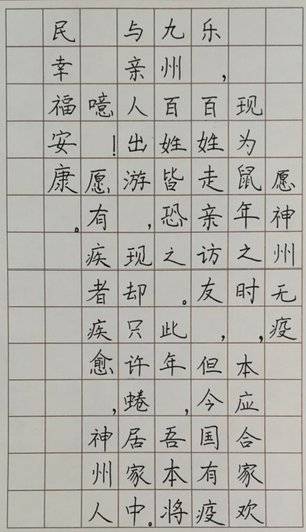 愿神州无疫
现为鼠年之时，本应合家欢
乐，百姓走亲访友，但今国有疫
九州百姓皆恐之。此年，吾本将
与亲人出游，现却只许蜷居家中。
噫！愿有疾者疾愈，神州人
民幸福安康。